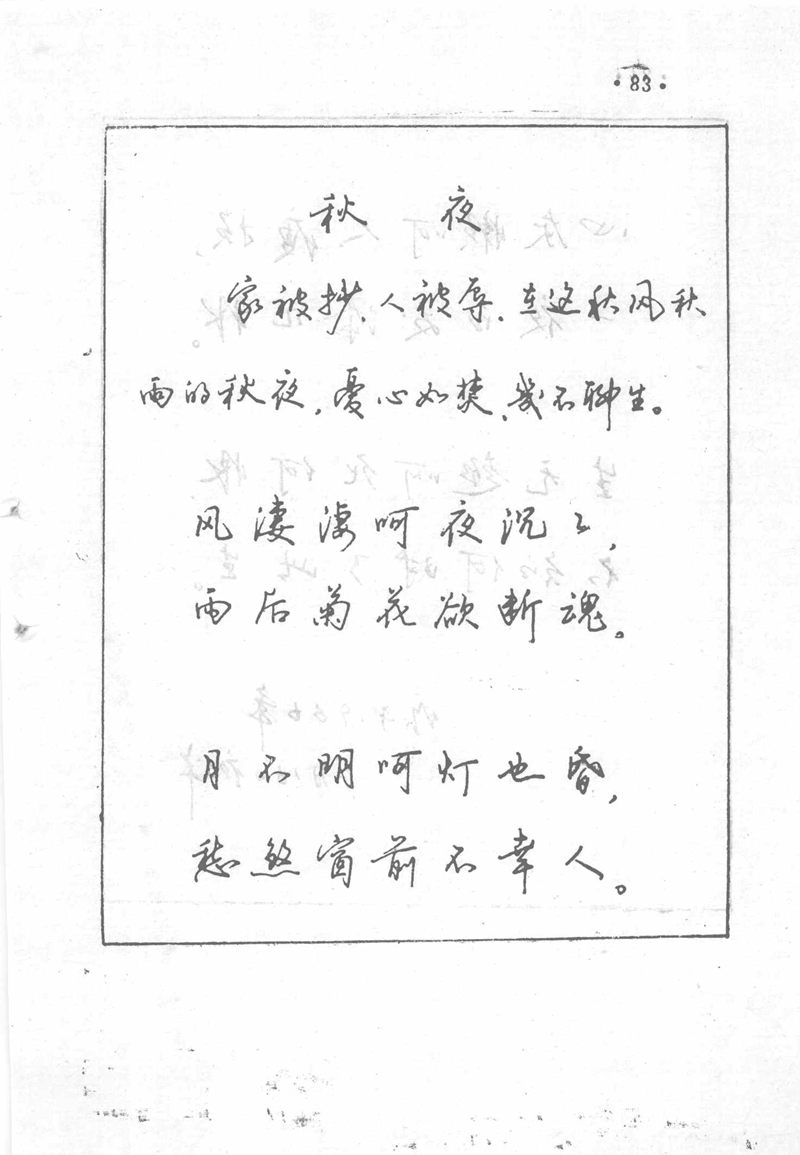 ·83·
秋 夜
家被抄人被辱,在这秋风秋
雨的秋夜,忧心如焚,几不聊生。
风凄凄呵夜沉々,
雨后菊花欲断魂。
月不明呵灯也昏,
愁煞窗前不幸人。